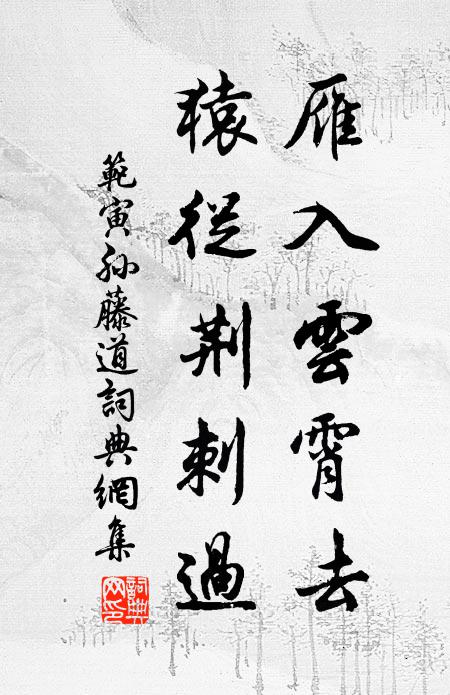 雁入雲霄去
猿從荆刺過
範寅孙藤道詞典網集
詞典網印